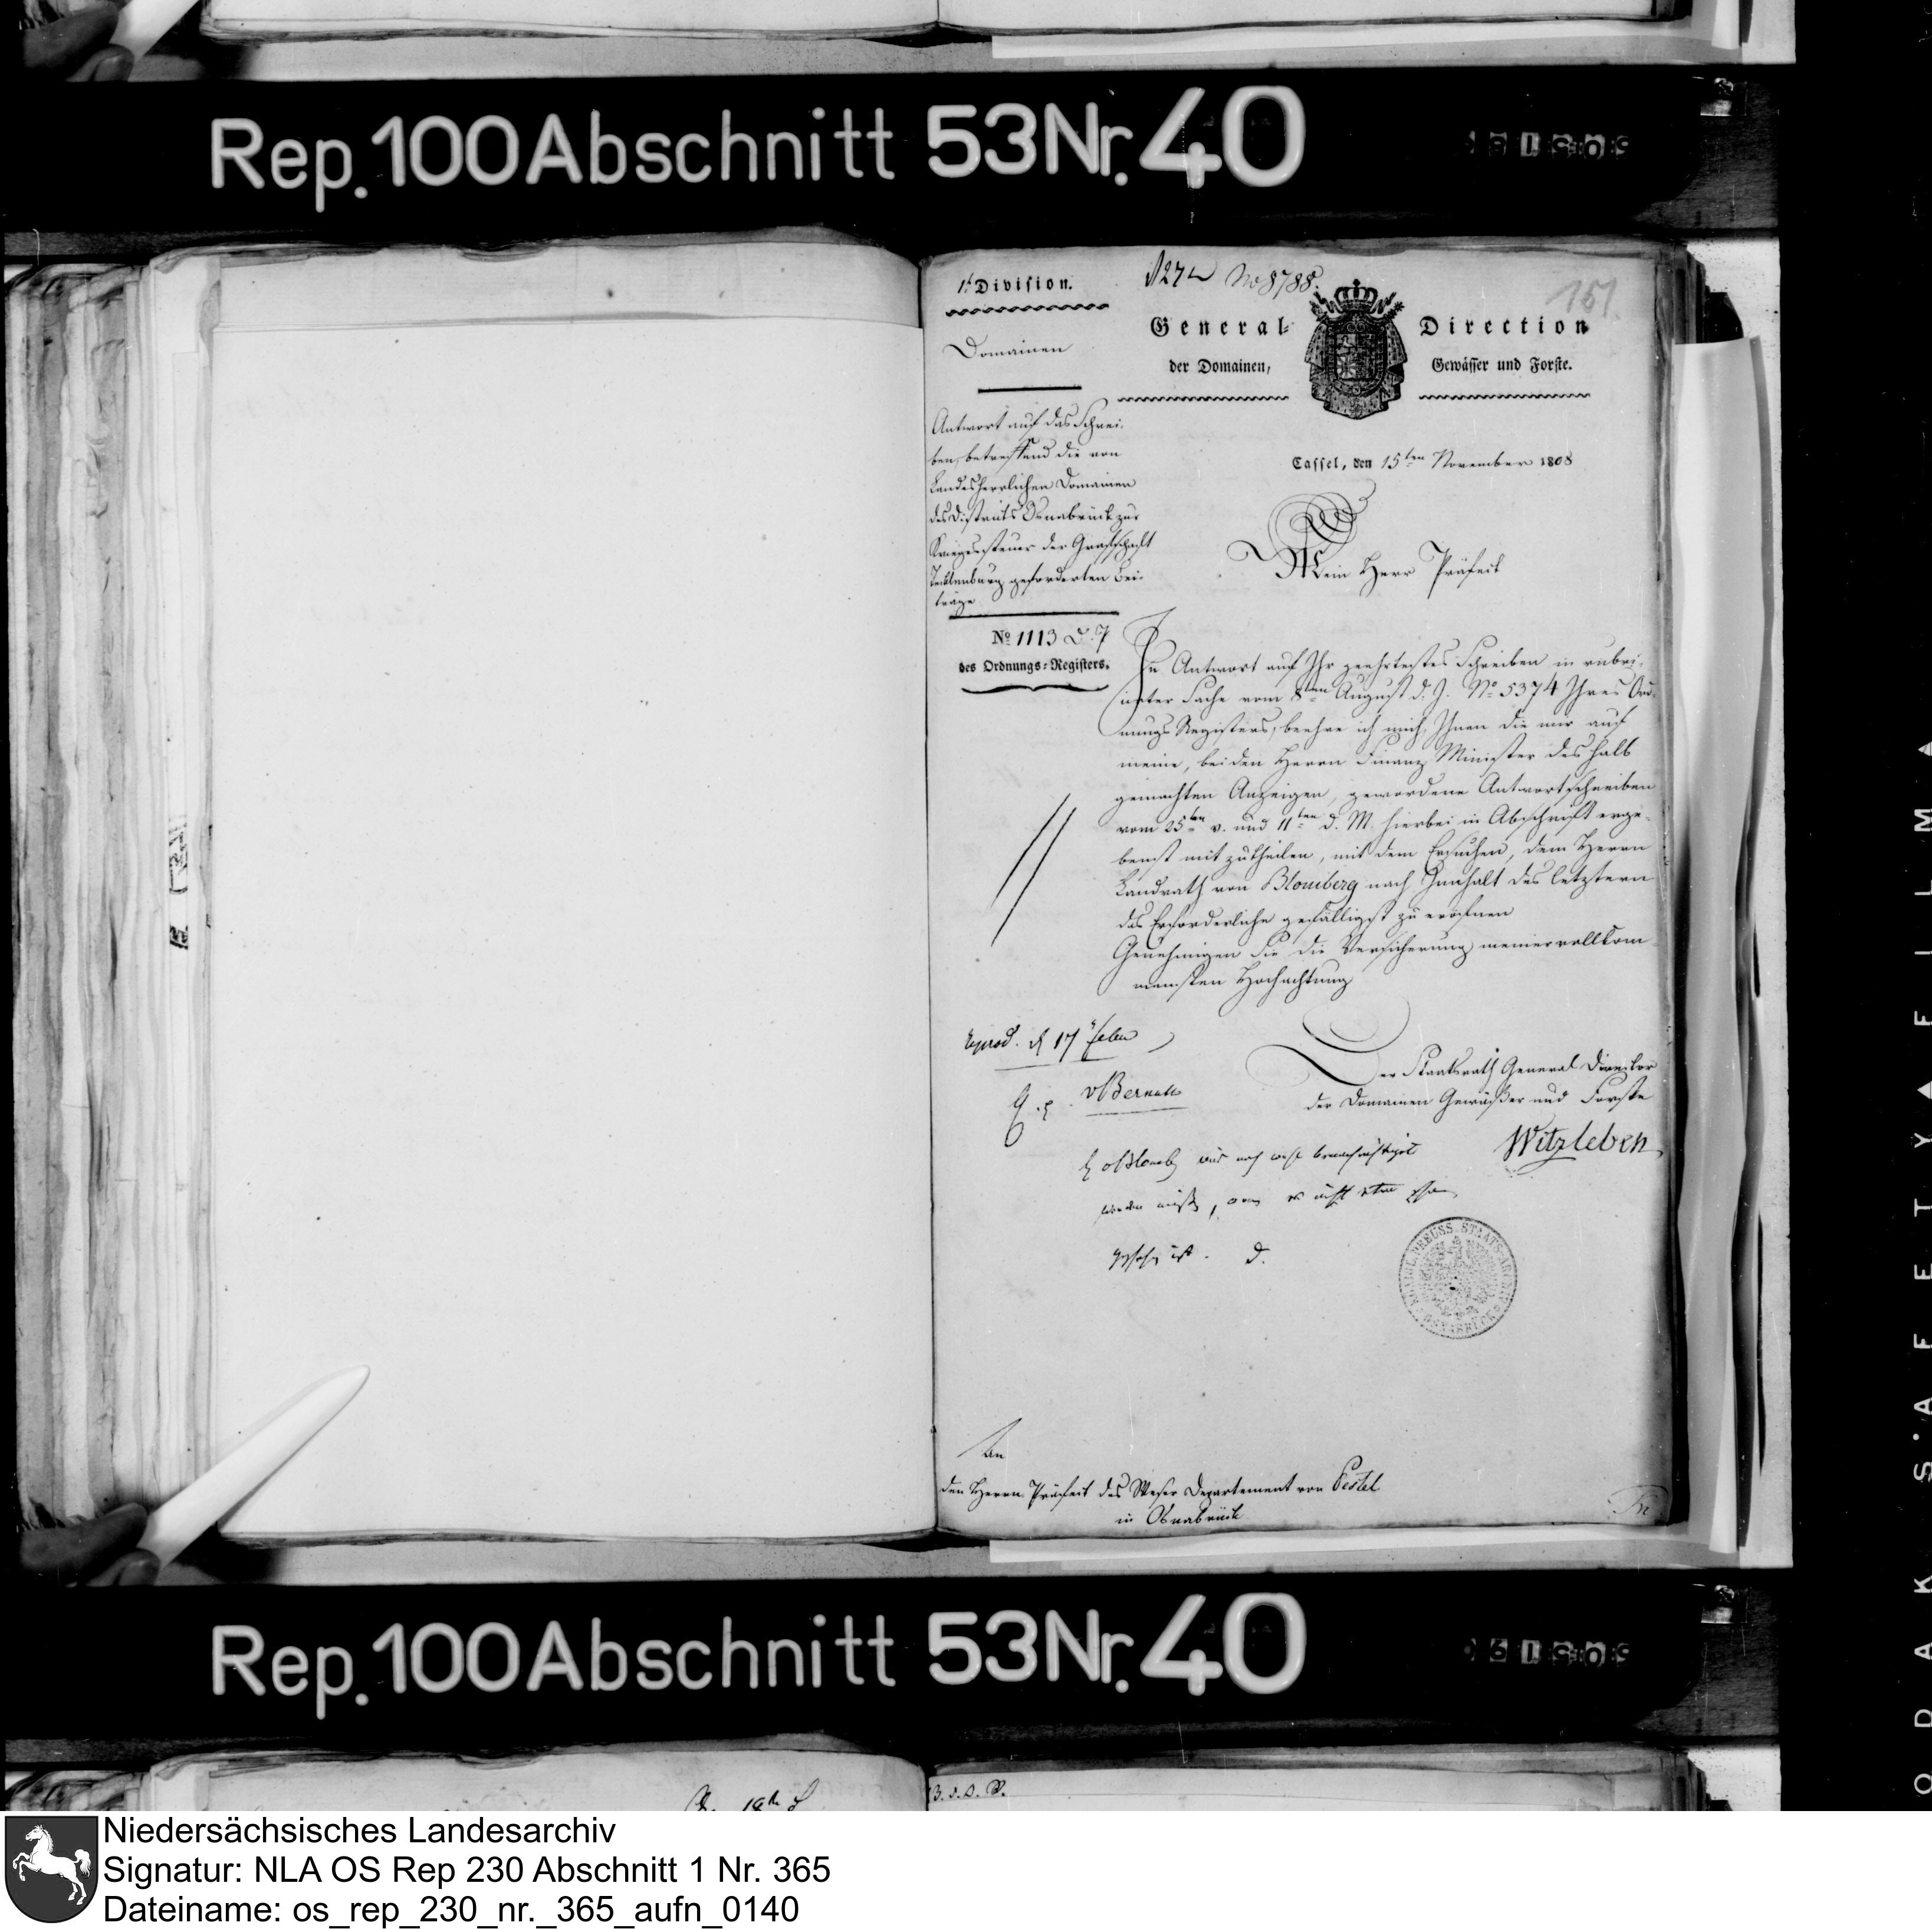 Rep. 100 Abschnitt 53 Nr. 40
1te Division.
No 8788.
151
General-Direction
der Domainen, Gewässer und Forste.
Domainen
Antwort auf das Schrei-
ben, betreffend die von
Landesherrlichen Domainen
des Districts Osnabrück zur
Kriegessteuer der Grafschaft
Tecklenburg geforderten Bei-
träge
No 1113 D. 7
des Ordnungs-Registers.
Cassel, den 15ten November 1808
Mein Herr Präfect
In Antwort auf Ihr geehrtestes Schreiben in rubri-
cirter Sache vom 8ten August d. J. No 5374 Ihres Ord-
nungs Registers, beehre ich mich, Ihnen die mir auf
meine, bei den Herrn Finanz Minister deshalb
gemachten Anzeigen, gewordene Antwortschreiben
vom 25ten v. und 11ten d. M. hierbei in Abschrift erge-
benst mitzutheilen, mit dem Ersuchen, dem Herrn
Landrath von Blomberg nach Innhalt des letztern
das Erforderliche gefälligst zu eröfnen
Genehmigen Sie die Versicherung meiner vollkom-
mensten Hochachtung
Der Staatsrath General Director
der Domainen Gewäßer und Forste
Witzleben
den 17
ist. D.
KÖNIGL. PREUSS. STAATS-ARCHIV OSNABRÜCK
An
den Herrn Präfect des Weser Departement von Pestel
in Osnabrück
Rep. 100 Abschnitt 53 Nr. 40
18te
KODAK SAFETY FILM
Niedersächsisches Landesarchiv
Signatur: NLA OS Rep 230 Abschnitt 1 Nr. 365
Dateiname: os_rep_230_nr._365_aufn_0140